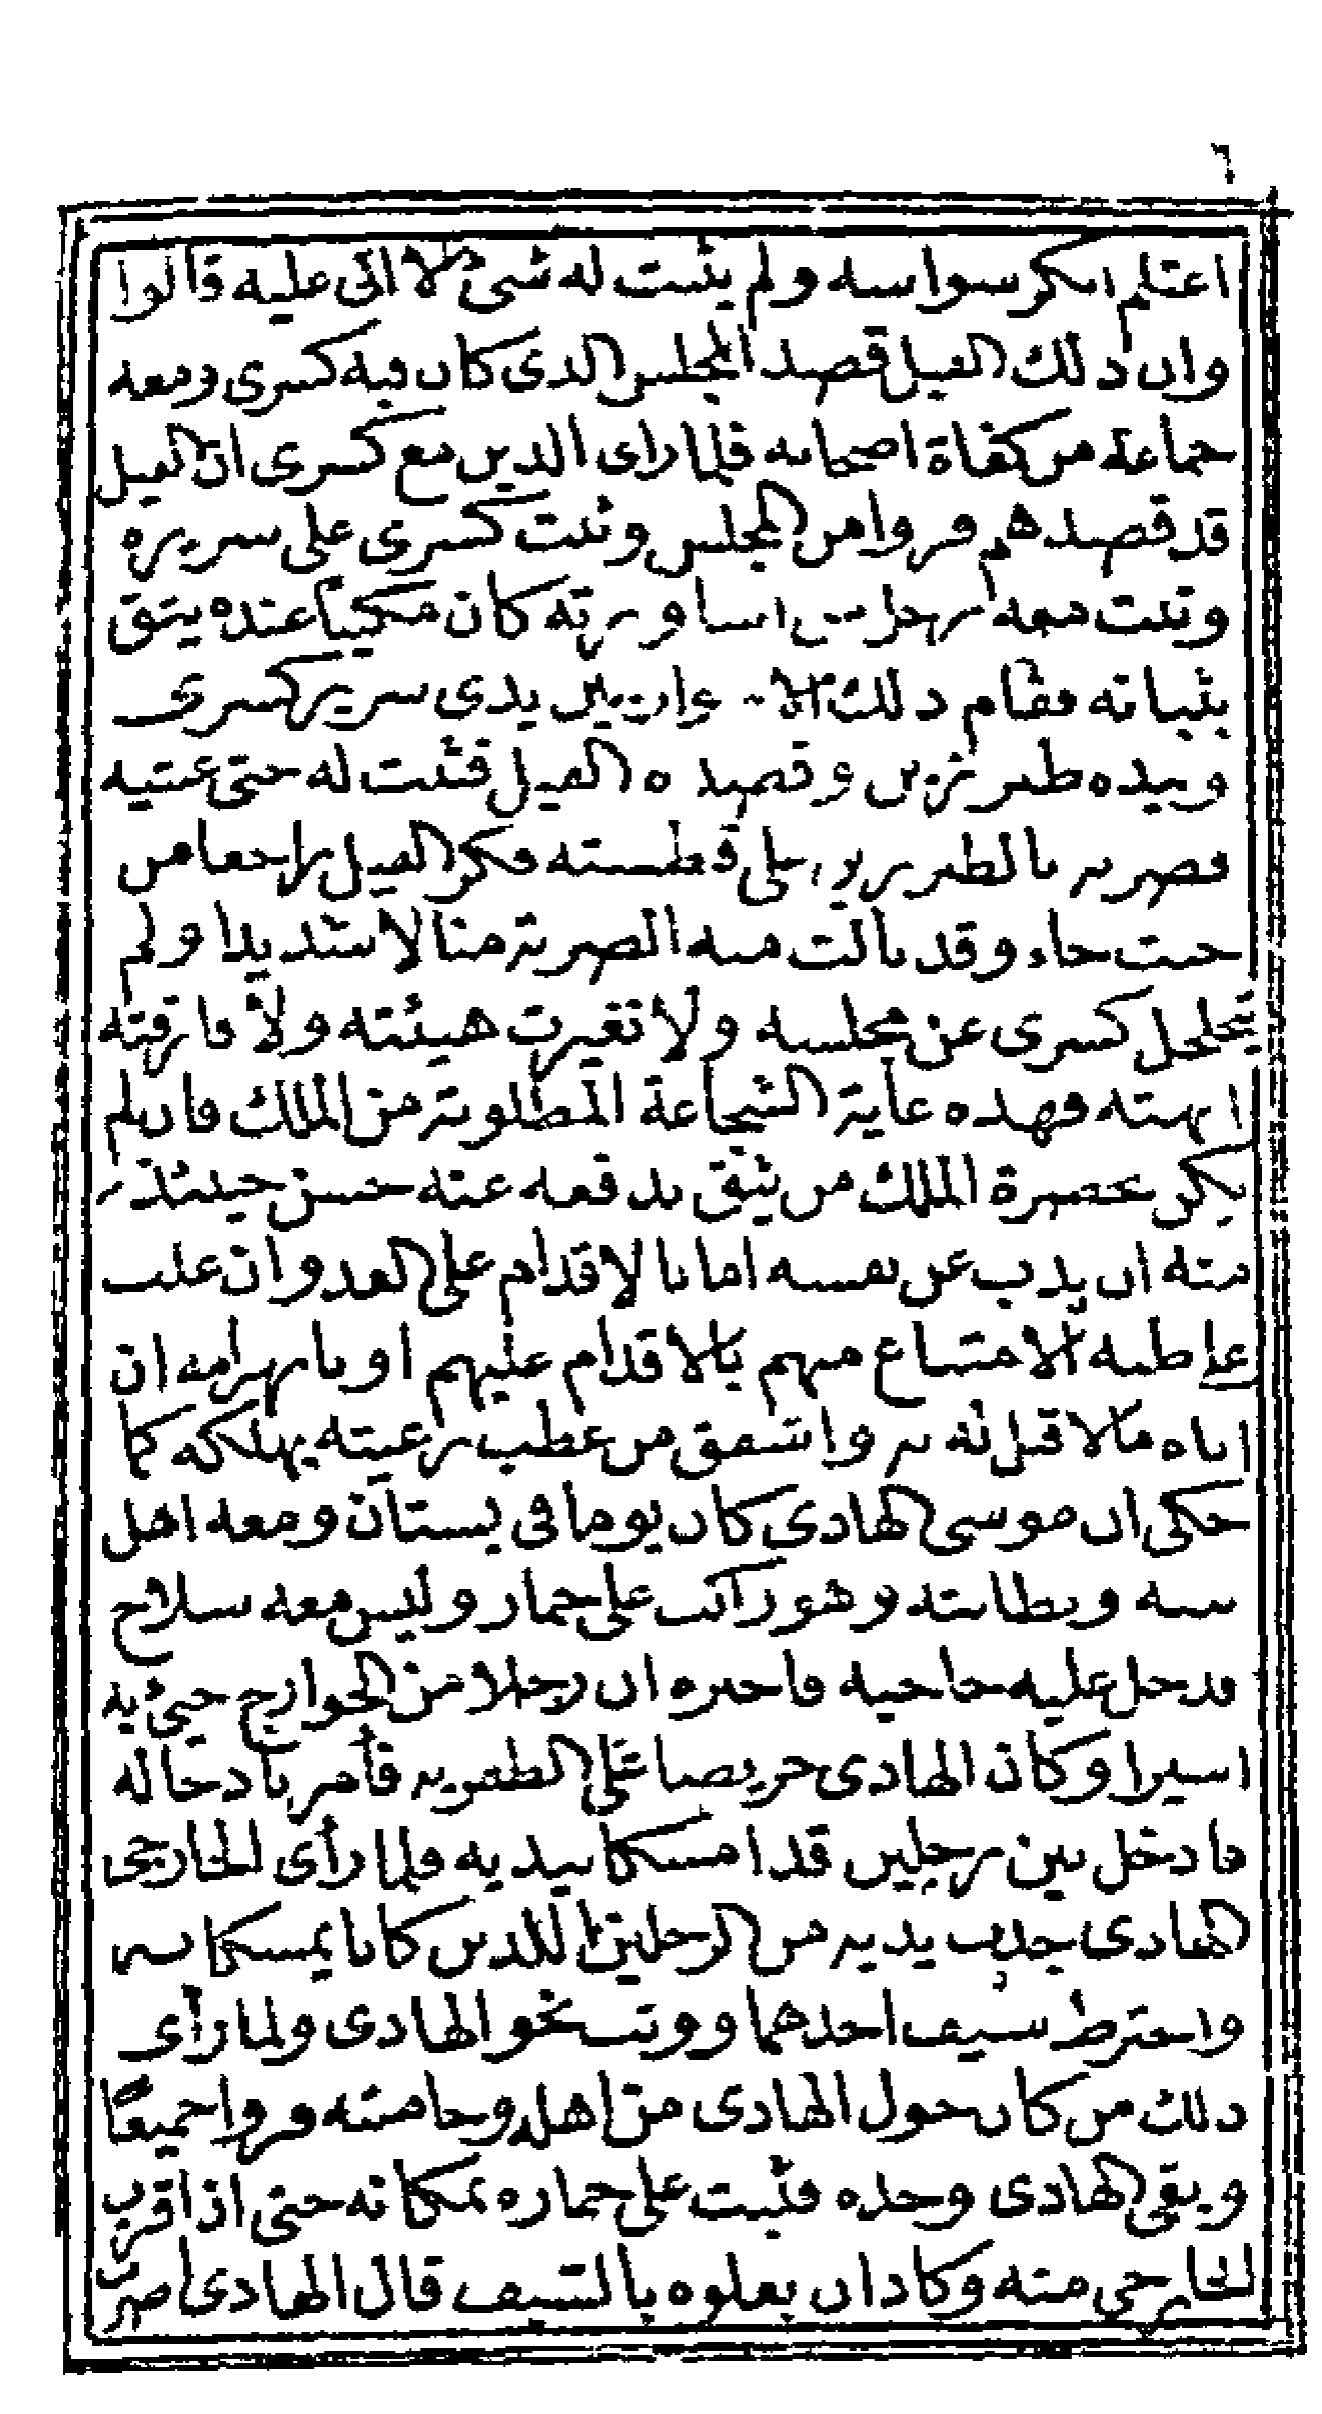 ٦
اعتلم انكر سواسه ولم يثبت له شئ الا اتى عليه قالوا
وان ذلك الفيل قصد المجلس الذى كان فيه كسرى ومعه
جماعة من كفاة اصحابه فلما راى الذين مع كسرى ان الفيل
قد قصدهم فروا من المجلس وثبت كسرى على سريره
وثبت معه رجل من اساورته كان مكينا عنده يثق
بثباته فقام ذلك بين يدى سرير كسرى
وبيده طبرزين وقصده الفيل فثبت له حتى غشيه
فضربه بالطبرزين على فكر الفيل راجعا من
حيث جاء وقد نالت منه الضربة منالا شديدا ولم
يتحلحل كسرى عن مجلسه ولا تغيرت هيئته ولا فارقته
ابهته فهذه غاية الشجاعة المطلوبة من الملك فان لم
يكن بحضرة الملك من يثق بدفعه عنه حسن حينئذ
منه ان يذب عن نفسه اما بالاقدام على العدو ان غلب
على ظنه الامتناع منهم بالاقدام عليهم او بانهزامه ان
اتاه مالا قبل له به واشفق من عطب رعيته بهلكه كما
حكى ان موسى الهادى كان يوما فى بستان ومعه اهل
بيته وبطانته وهو راكب على حمار وليس معه سلاح
فدخل عليه حاجبه فاخبره ان رجلا من الخوارج جئ به
اسيرا وكان الهادى حريصا على الظفر به فأمر بادخاله
فادخل بين رجلين قد امسكا بيديه فلما رأى الخارجى
الهادى جذب يديه من الرجلين اللذين كانا يمسكانه
واخترط سيف احدهما ووثب نحو الهادى ولما رأى
ذلك من كان حول الهادى من اهله وخاصته فروا جميعًا
وبقى الهادى وحده فثبت على حماره بمكانه حتى اذا قرب
الخارجى منه وكاد ان يعلوه بالسيف قال الهادى اضرب